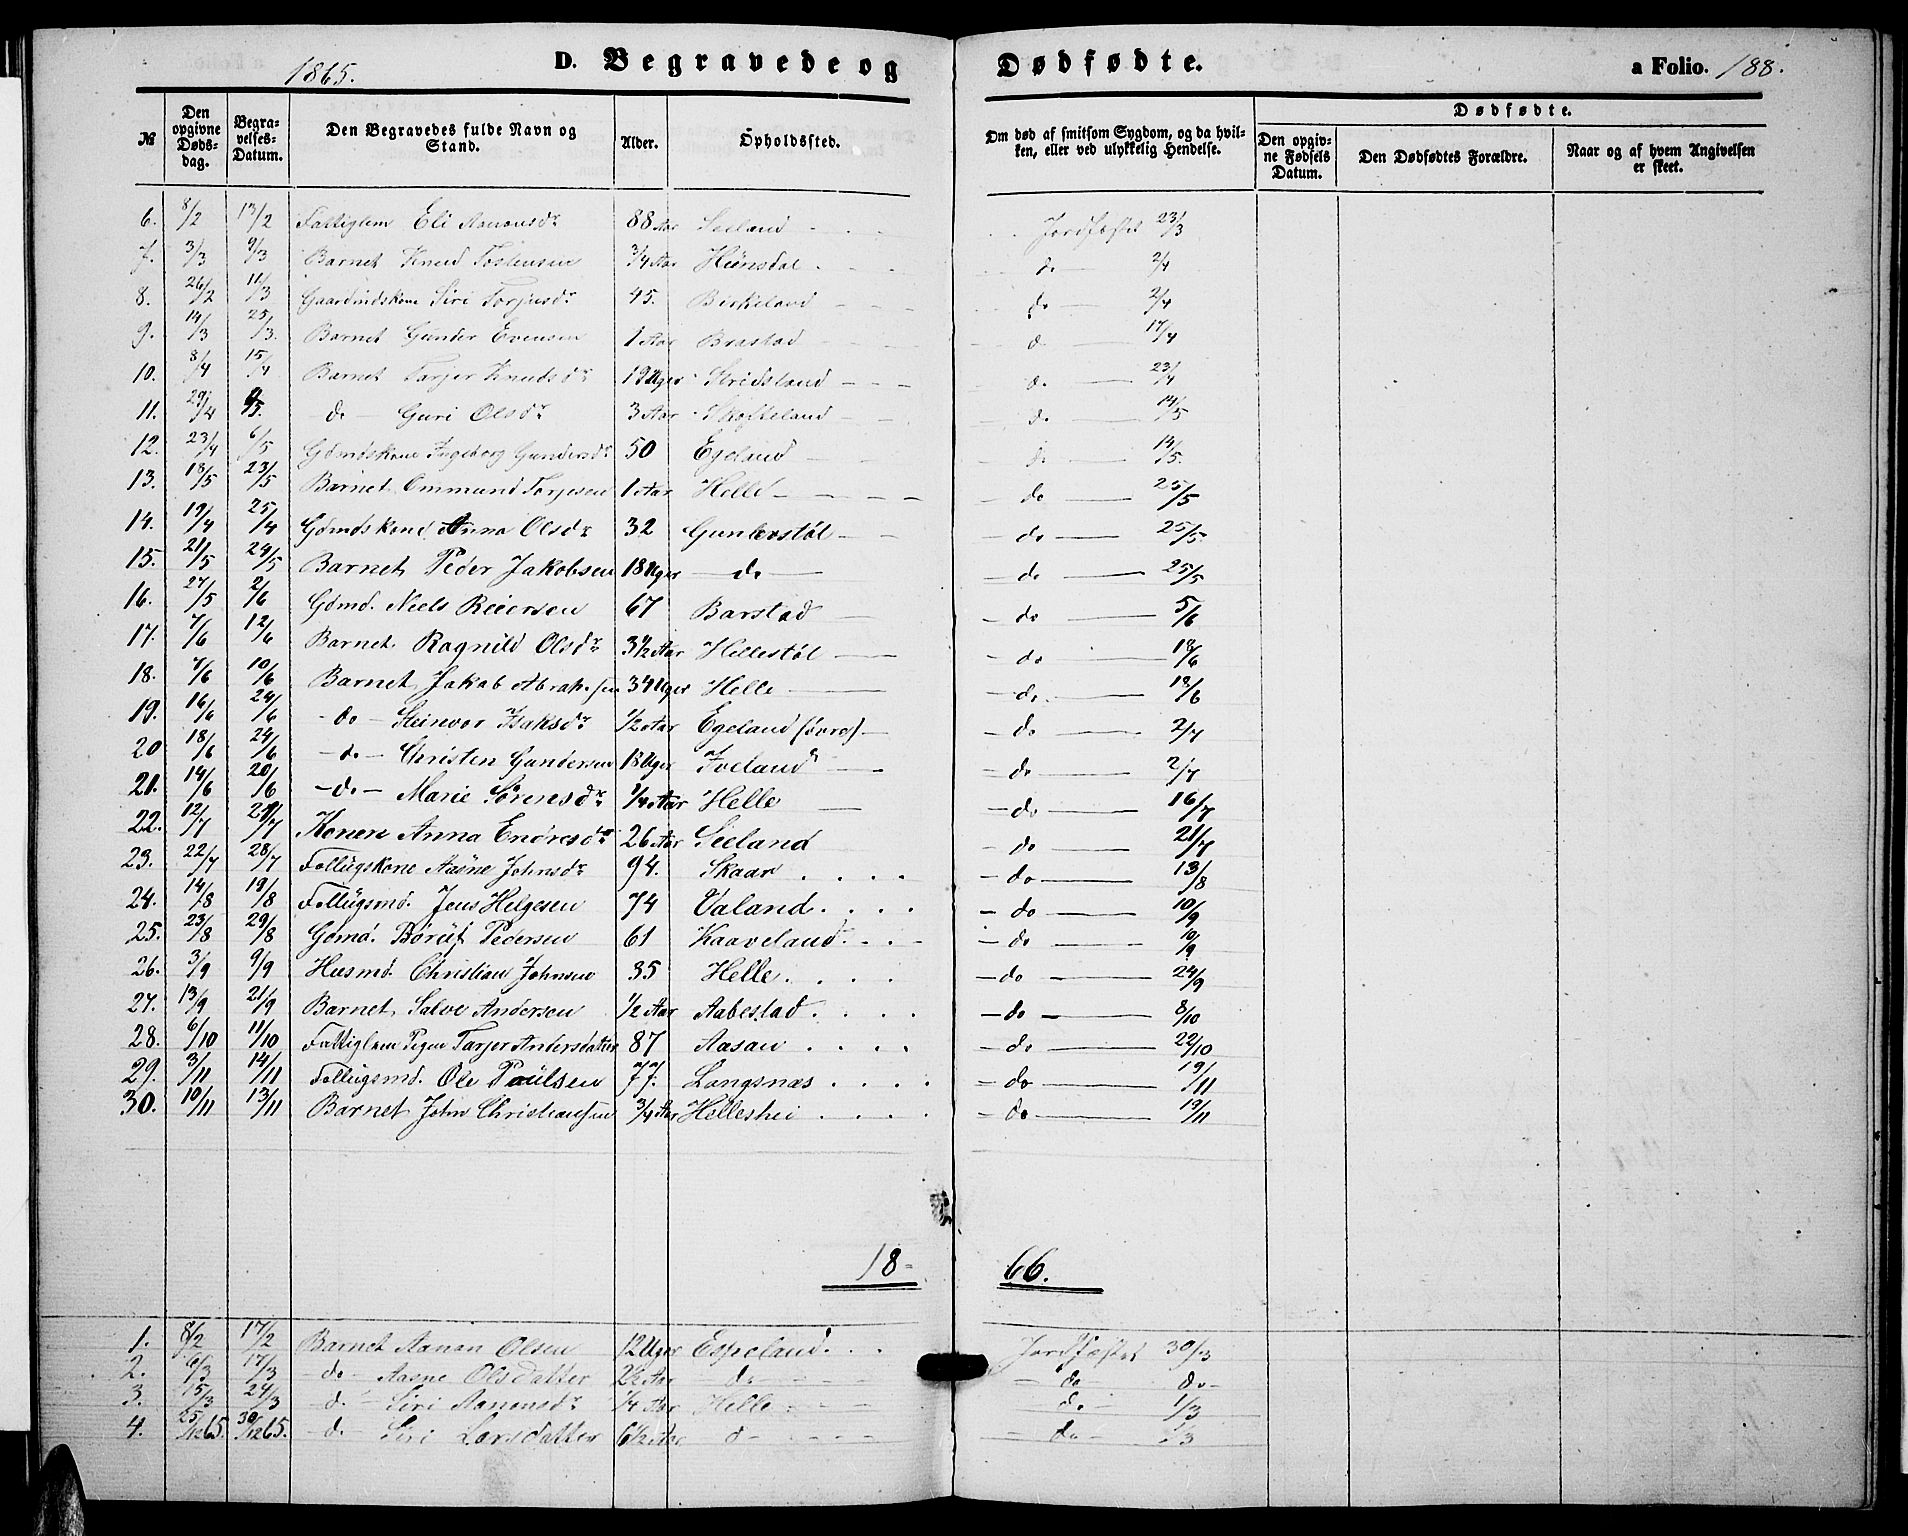 1865. D. Begravede og Dødfødte. a Folio. 188.
№ Den opgivne Dødsdag. Begravelses-Datum. Den Begravedes fulde Navn og Stand. Alder. Opholdssted. Om død af smitsom Sygdom, og da hvilken, eller ved ulykkelig Hendelse. Dødfødte.
Den opgivne Fødsels Datum. Den Dødfødtes Forældre. Naar og af hvem Angivelsen er skeet.
6. 8/2 13/2 Fattiglem Eli Aanonsdr 88 Aar Seeland Jordfæstet 23/3
7. 3/3 9/3 Barnet Knud Tostensen 3/4 Aar Hünsdal do 2/4
8. 26/2 11/3 Gaardmdskone Siri Torjusdr 45. Birkeland do 2/4
9. 14/3 25/3. Barnet Gunder Evensen 1 Aar Brastad d. 17/4
10. 8/4 15/4 Barnet Tarjer Knudsdr 19 Uger Stridsland d. 23/4
11. 29/4 5. do Guri Olsdr 3 Aar Skofteland do 14/5
12. 23/4 6/5 Gdmdskone Ingeborg Gundersdr 50 Egeland do 14/5.
13. 18/5 23/5 Barnet Ommund Torjesen 1 Aar Helle do 25/5
14. 19/4 25/4 Gdmdskone Anna Olsdr 32 Gunlerstøl do 25/5
15. 21/5 24/5 Barnet Peder Jakobsen 18 Uger do do 25/5
16. 27/5 2/6 Gdmd. Niels Reiersen 67 Barstad do 5/6
17. 7/6 12/6 Barnet Ragnild Olsdr 3 1/2 Aar Hellestøl do 18/6
18. 7/6 10/6 Barnet Jakob Abrahsen 34 Uger Helle do. 18/6
19. 16/6 24/6 do Steinvor Isaksdr 1/2 Aar Egeland (øvre) do 2/7
20 18/6 24/6 do Christen Gundersen 18 Uger Iveland do 2/7
21. 14/6 20/6 do Marie Sørensdr 1/4 Aar Helle do 16/7
22. 12/7 /7 Konen Anna Endresdr 26 Aar Seeland do 21/7
23. 22/7 28/7 Follügskone Aasne Johnsdr 94. Skaar do 13/8
24. 14/8 19/8 Follügsmd. Jens Helgesen 74 Valand do 10/9
25. 23/8 29/8 Gdmd. Børüf Pedersen 61 Kaaveland do 10/9
26. 3/9 9/9 Husmd. Christian Johnsen 35 Helle do 24/9
27. 13/9 21/9 Barnet Salve Andersen 1/2 Aar Aabestad do 8/10
28. 6/10 11/10 Fattiglem Pigen Tarjer Andersdatter 87 Aasan do 22/10
29. 3/11 14/11 Follügsmd. Ole Paulsen 77. Langsnæs do 19/11
30. 10/11 13/11 Barnet John Christiansen 3/4 Aar Helleshei do 19/11
18-66.
1. 8/2 17/2 Barnet Aanon Olsen 12 Uger Espeland Jordfæstet 30/3
2. 6/3 17/3 do Aasne Olsdatter 2 1/2 Aar do do do
3. 15/3 24/3 d. Siri Aanonsdr 1/4 Aar Helle do 1/3
4. 25/12 65. 30/12 65. d. Siri Larsdatter 6 1/2 Aar d do /3